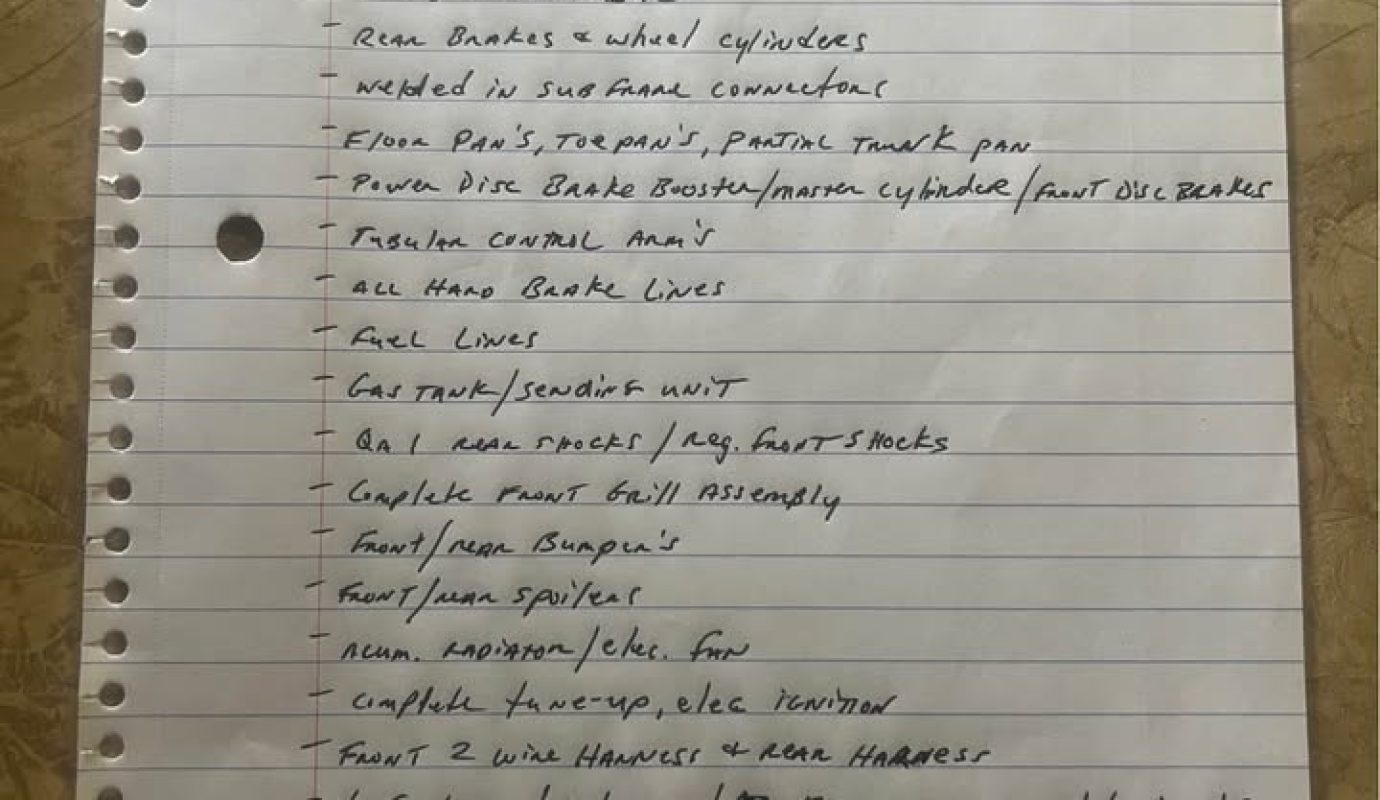 - Rear Brakes & wheel cylinders
- welded in sub frame connectors
- Floor Pan's, Toe pan's, Partial Trunk pan
- Power Disc Brake Booster/master cylinder/Front Disc Brakes
- Tubular control Arm's
- All Hard Brake Lines
- Fuel Lines
- Gas Tank/sending unit
- QA 1 rear shocks/reg. front shocks
- Complete Front Grill Assembly
- Front/rear Bumper's
- Front/rear spoilers
- Alum. Radiator/elec. Fan
- Complete tune-up, elec ignition
- Front 2 wire Harness & rear Harness